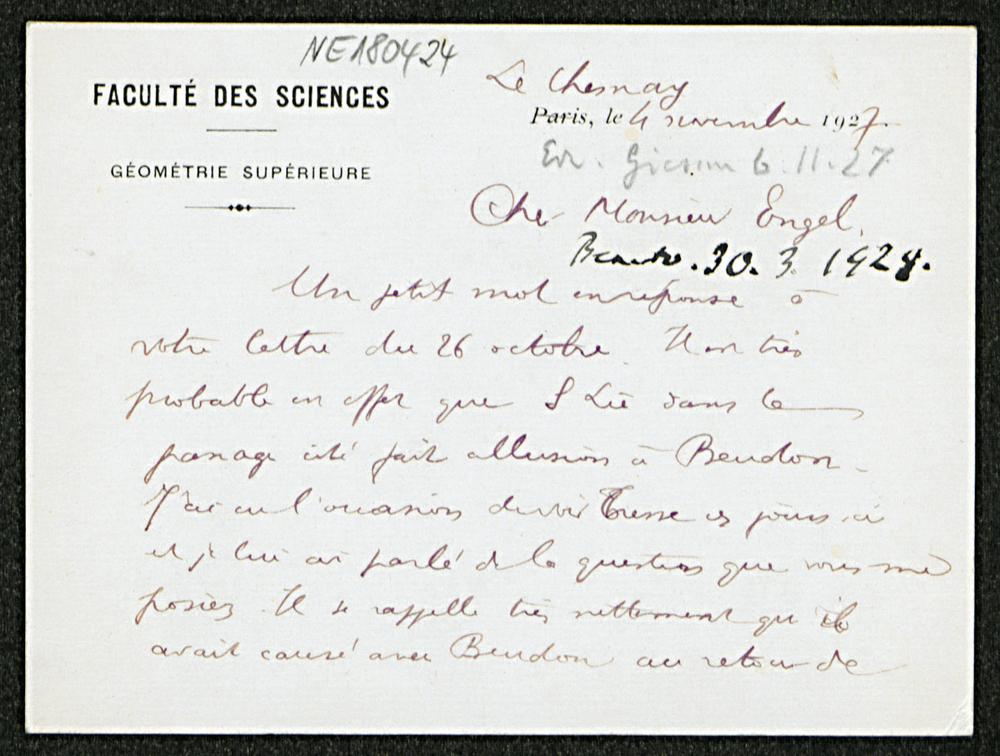 NE180424
FACULTÉ DES SCIENCES
GÉOMÉTRIE SUPÉRIEURE
Le Chesnay
Paris, le 4 novembre 1927.
6.11.27
Cher Monsieur Engel,
30. 3. 1928.
Un petit mot en réponse à
votre lettre du 26 octobre. Il est très
probable en effet que S Lie dans le
passage cité fait allusion à Beudon.
J'ai eu l'occasion de voir Tresse ces jours-ci
et je lui ai parlé de la question que vous me
posiez. Il se rappelle très nettement qu'il
avait causé avec Beudon au retour de